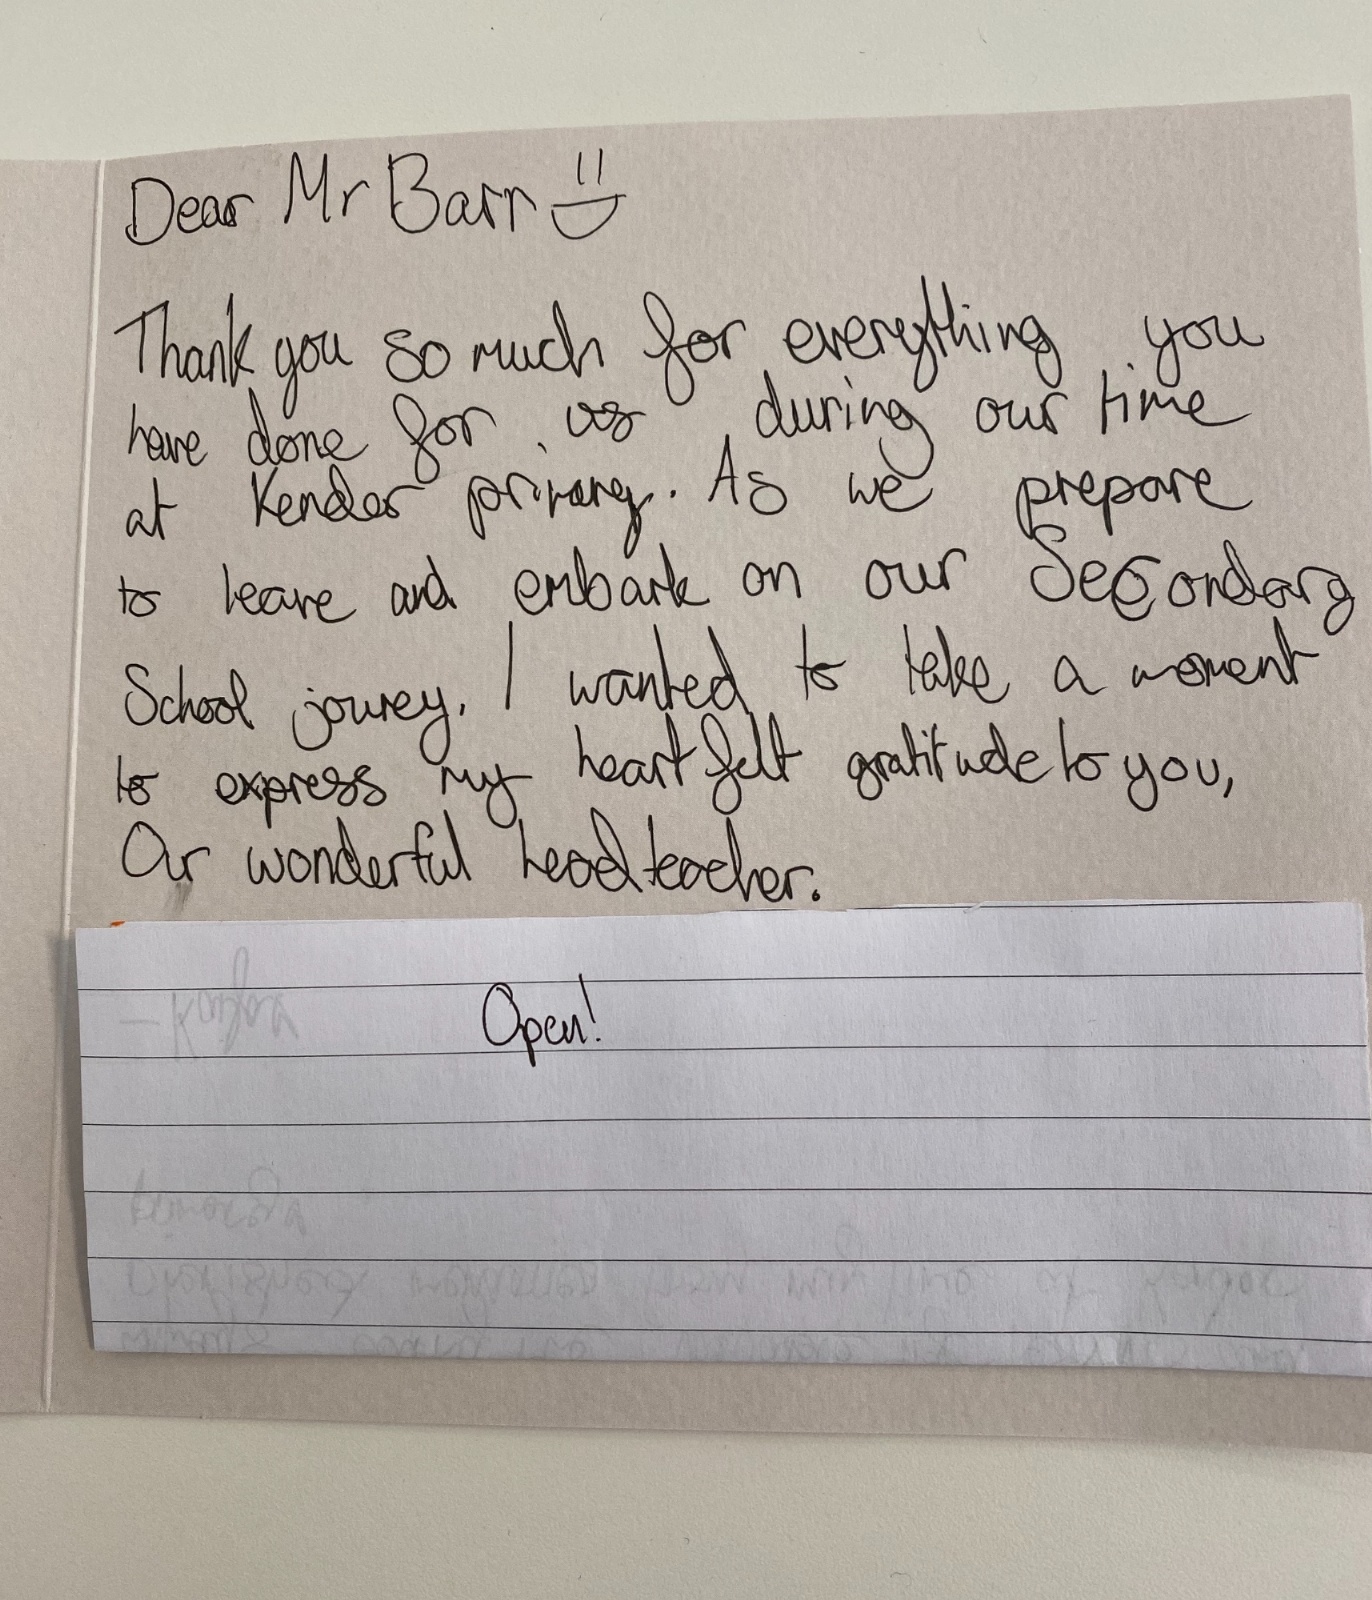 Dear Mr Barr
Thank you so much for everything you
have done for us during our time
at Kender primary. As we prepare
to leave and embark on our Secondary
School jourey. I wanted to take a moment
to express my heartfelt gratitude to you,
Our wonderful headteacher.
Open!